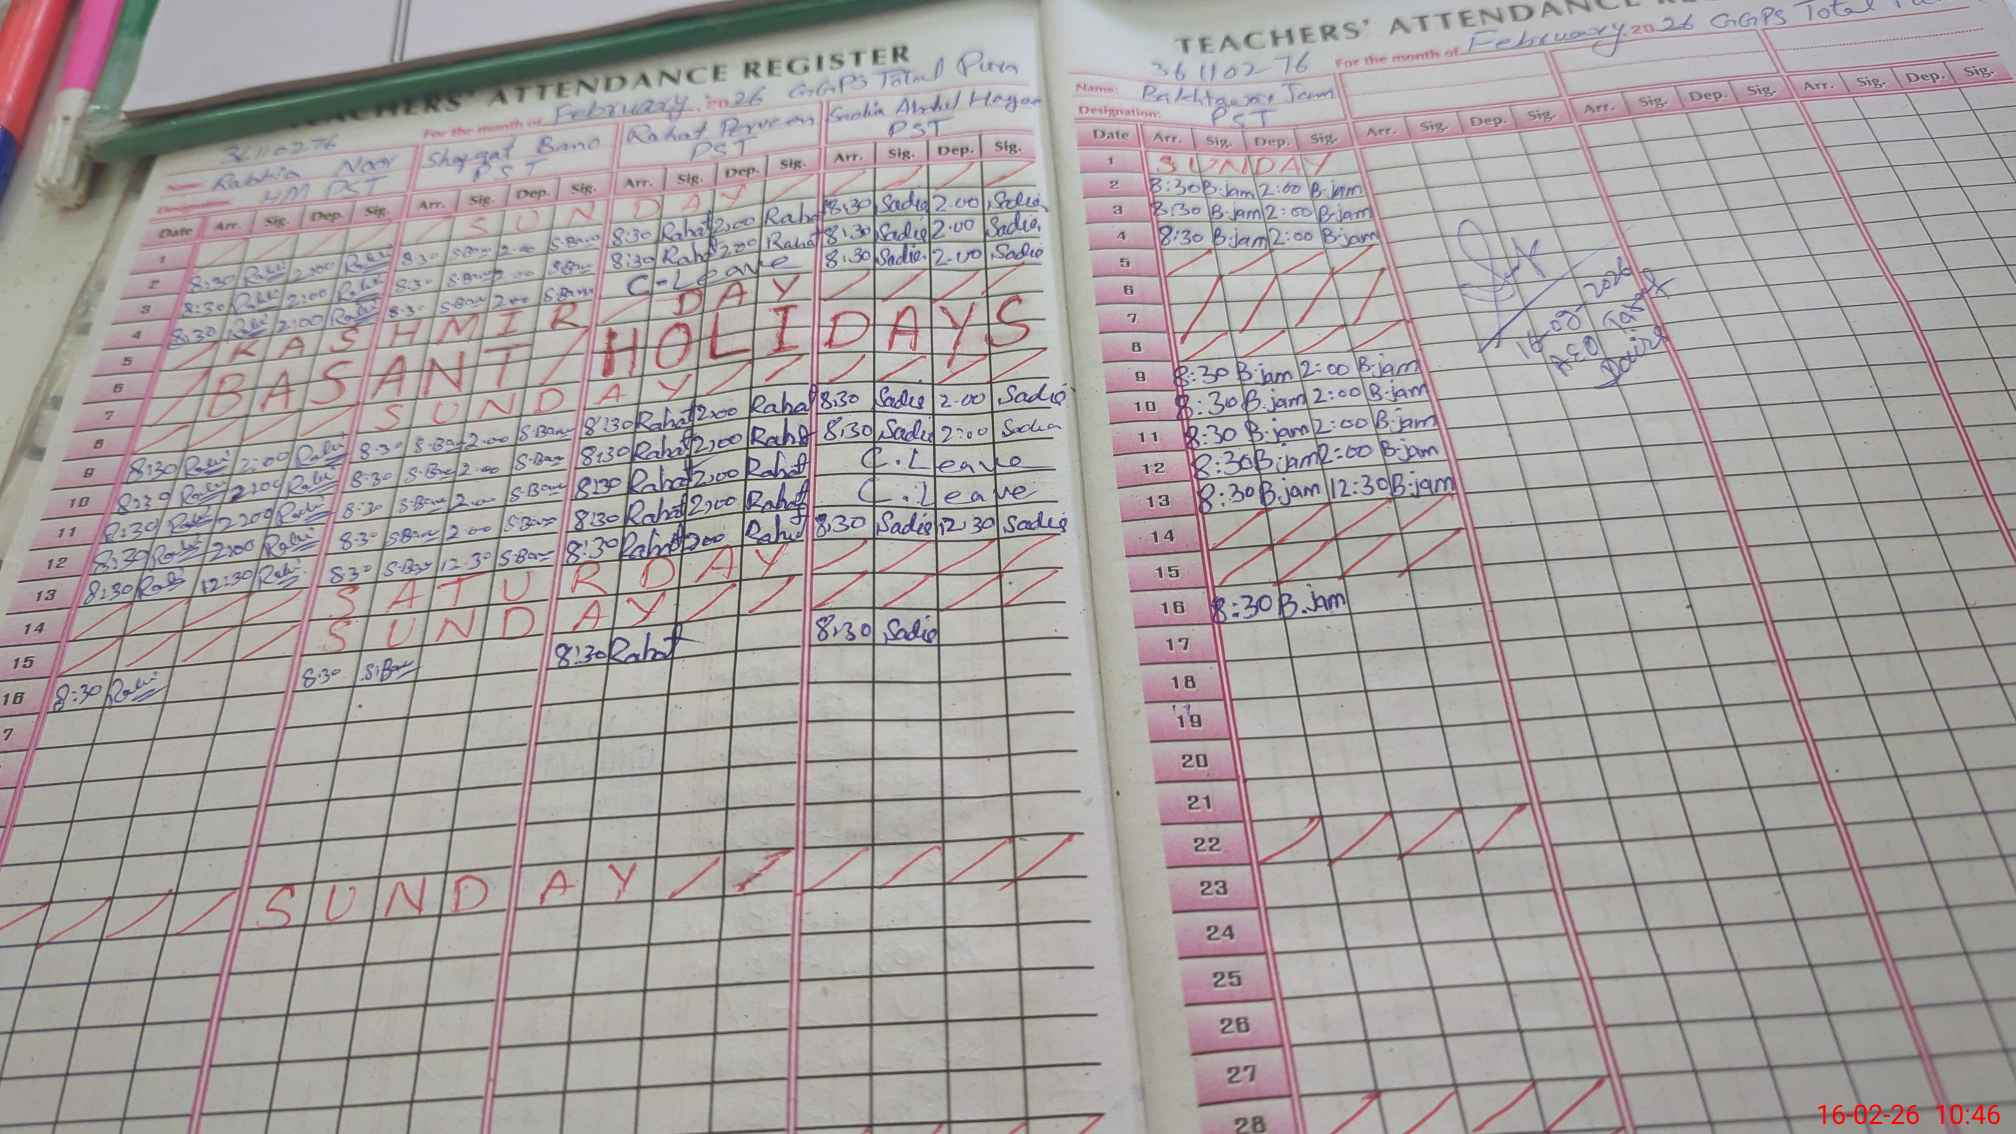 TEACHERS' ATTENDANCE REGISTER
36110276 For the month of February 2026 GGPS Total Pura
Name: Rabhia Naar Shagufat Bano Rahat Perveen Sadia Abdul
Designation: HM PST PST PST PST
Date Arr. Sig. Dep. Sig. Arr. Sig. Dep. Sig. Arr. Sig. Dep. Sig. Arr. Sig. Dep. Sig.
1 SUNDAY
2 8:30 Rabi 2:00 Rabi 8:30 S.Bano 2:00 S.Bano 8:30 Rahat 2:00 Rahat 8:30 Sadia 2:00 Sadia
3 8:30 Rabi 2:00 Rabi 8:30 S.Bano 2:00 S.Bano 8:30 Rahat 2:00 Rahat 8:30 Sadia 2:00 Sadia
4 8:30 Rabi 2:00 Rabi 8:30 S.Bano 2:00 S.Bano C-Leave 8:30 Sadia 2:00 Sadia
5 KASHMIR DAY
6 BASANT HOLIDAYS
7
8 SUNDAY
9 8:30 Rabi 2:00 Rabi 8:30 S.Bano 2:00 S.Bano 8:30 Rahat 2:00 Rahat 8:30 Sadia 2:00 Sadia
10 8:30 Rabi 2:00 Rabi 8:30 S.Bano 2:00 S.Bano 8:30 Rahat 2:00 Rahat 8:30 Sadia 2:00 Sadia
11 8:30 Rabi 2:00 Rabi 8:30 S.Bano 2:00 S.Bano 8:30 Rahat 2:00 Rahat C.Leave
12 8:30 Rabi 2:00 Rabi 8:30 S.Bano 2:00 S.Bano 8:30 Rahat 2:00 Rahat C.Leave
13 8:30 Rabi 12:30 Rabi 8:30 S.Bano 12:30 S.Bano 8:30 Rahat 2:00 Rahat 8:30 Sadia 12:30 Sadia
14 SATURDAY
15 SUNDAY
16 8:30 Rabi 8:30 S.Bano 8:30 Rahat 8:30 Sadia
7
SUNDAY
TEACHERS' ATTENDANCE RE
36110276 For the month of February 2026 GGPS Total
Name: Bakhtawar Jam
Designation: PST
Date Arr. Sig. Dep. Sig. Arr. Sig. Dep. Sig. Arr. Sig. Dep. Sig. Arr. Sig. Dep. Sig.
1 SUNDAY
2 8:30 B.jam 2:00 B.jam
3 8:30 B.jam 2:00 B.jam
4 8:30 B.jam 2:00 B.jam
5
6
7
8
9 8:30 B.jam 2:00 B.jam
10 8:30 B.jam 2:00 B.jam
11 8:30 B.jam 2:00 B.jam
12 8:30 B.jam 2:00 B.jam
13 8:30 B.jam 12:30 B.jam
14
15
16 8:30 B.jam
17
18
19
20
21
22
23
24
25
26
27
28
16-02-2026
AEO
16-02-26 10:46